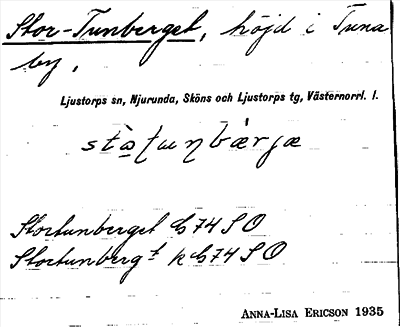 Stor-Tunberget, höjd i Tuna
by.
Ljustorps sn, Njurunda, Sköns och Ljustorps tg, Västernorrl. l.
Stortunberget G74SO
Stortunbergt k G74SO
ANNA-LISA ERICSON 1935